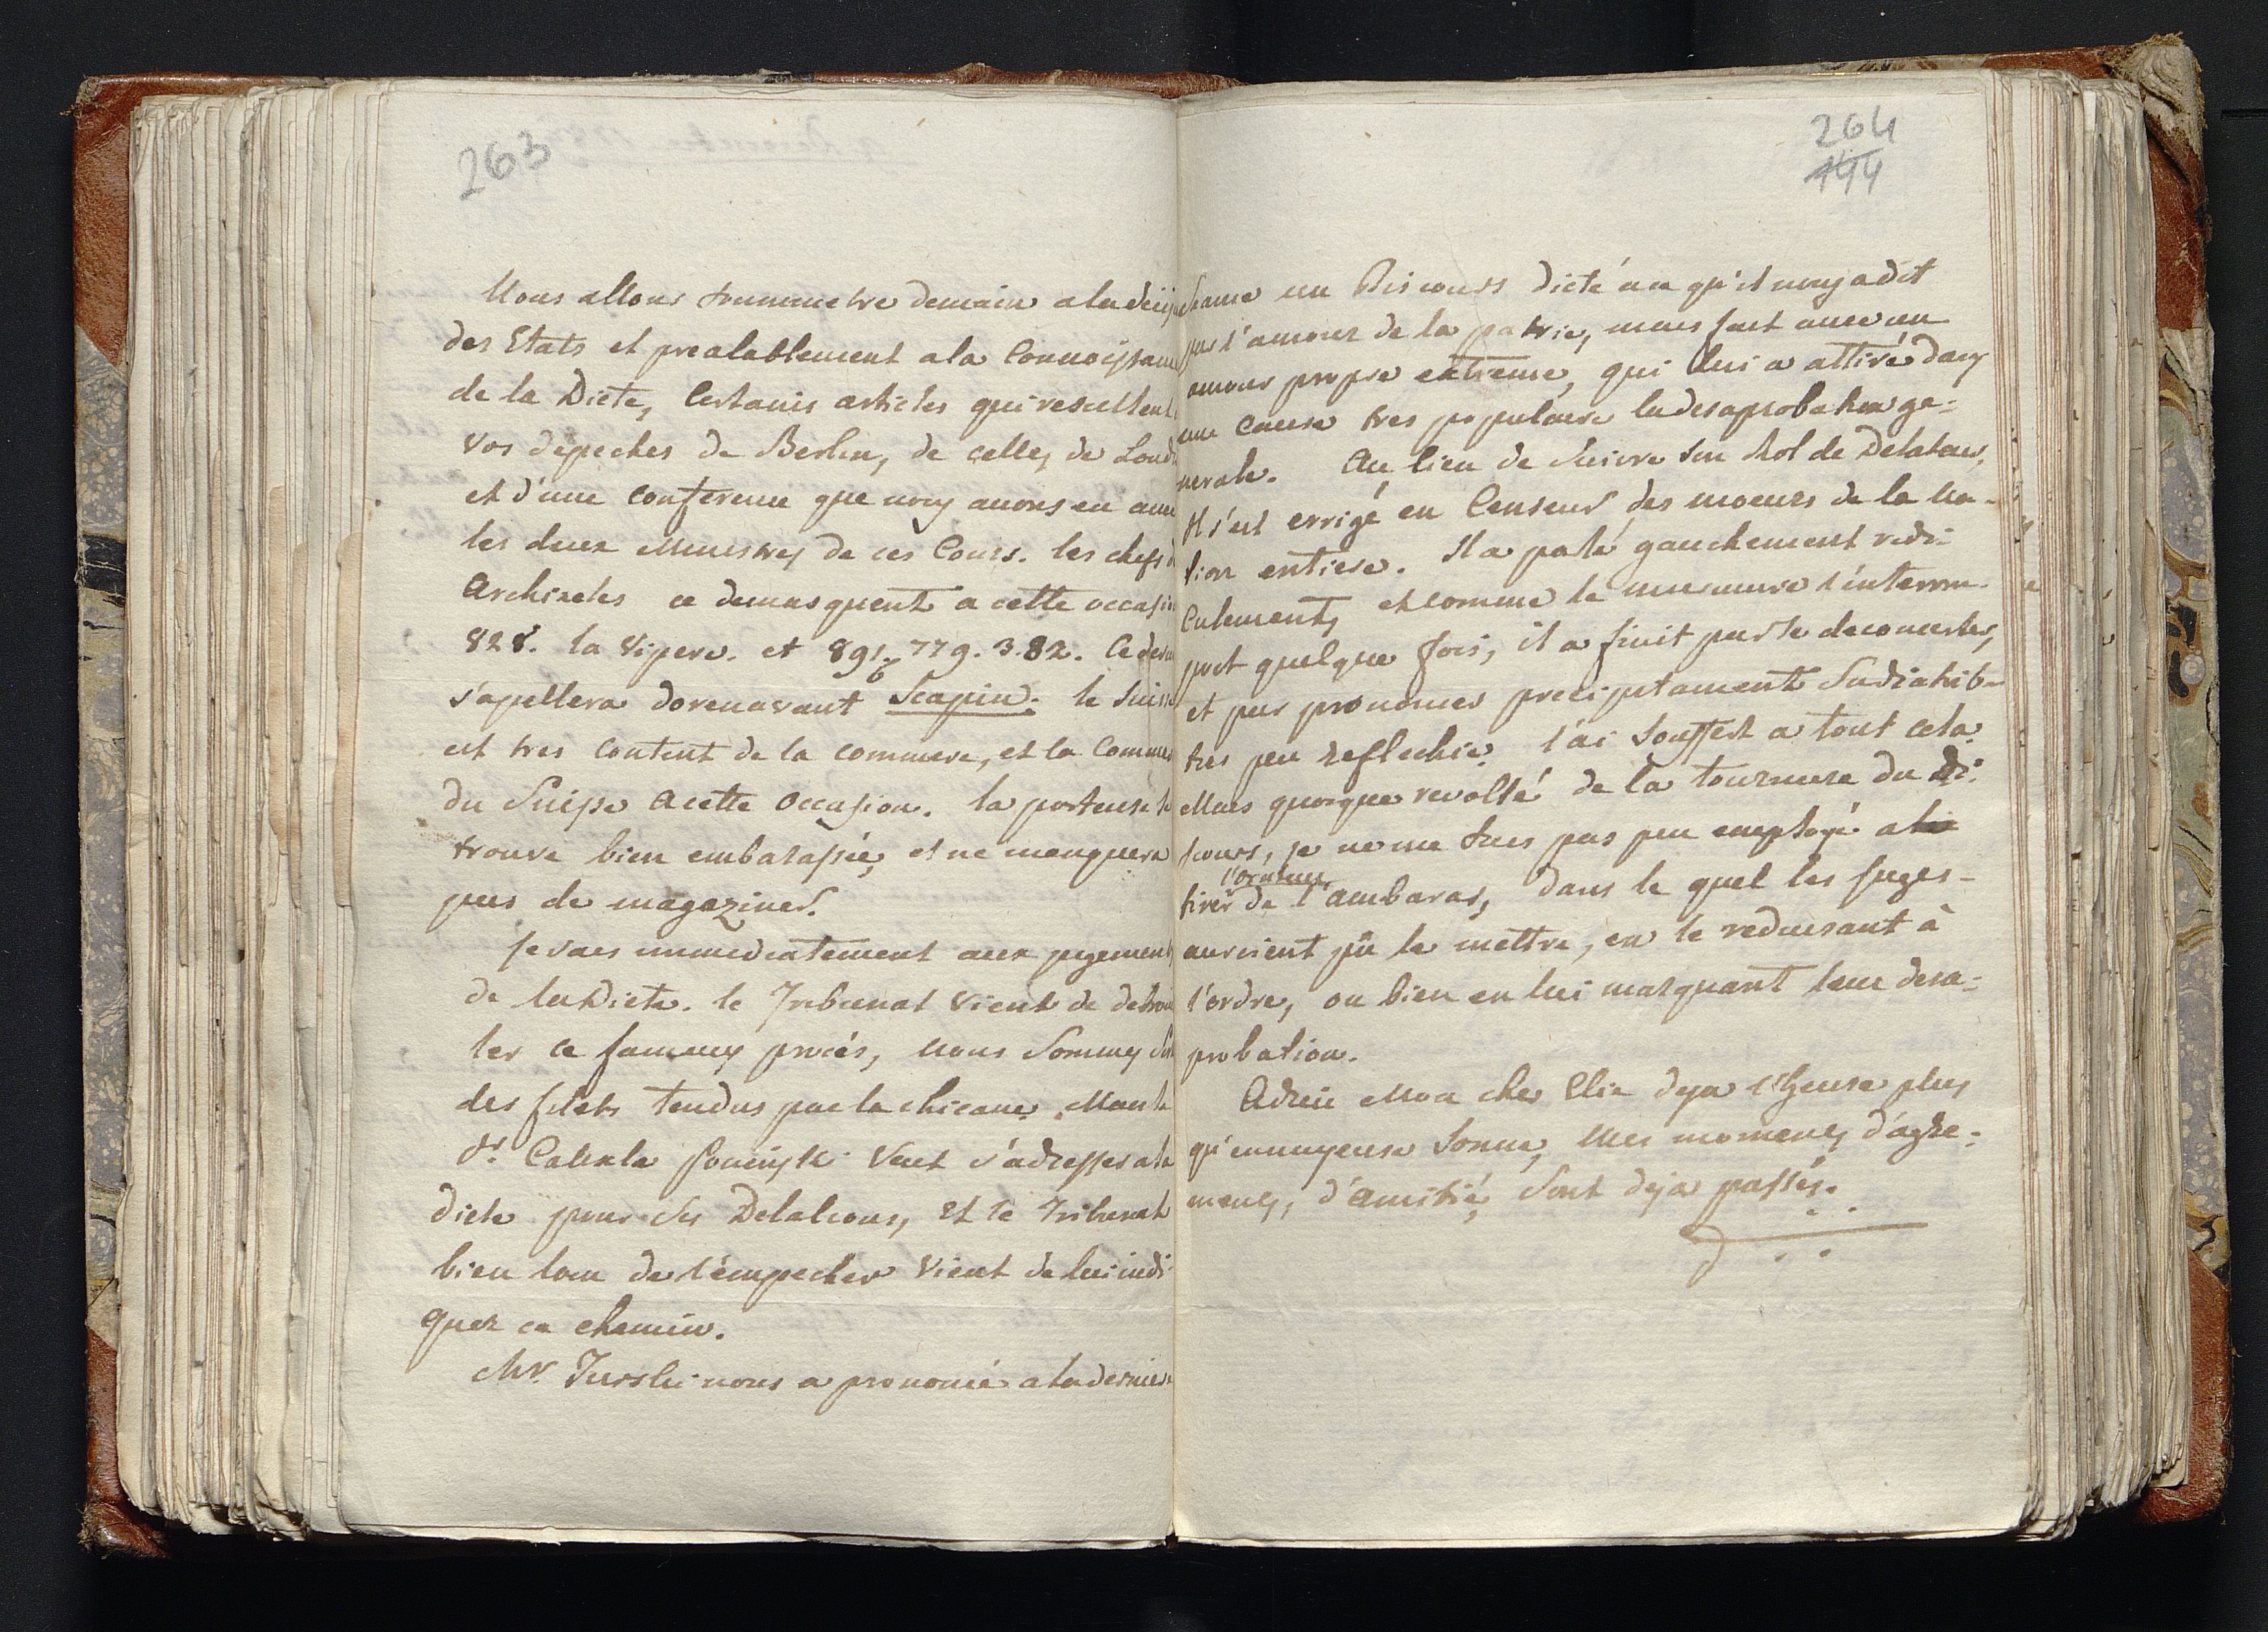 263
Nous allons soummettre demain a la deci
des Etats et prealablement a la Connoissan
de la Diete, Certains articles qui resultent
vos depeches de Berlin, de celles de Lond
et d'une conference que nous avons eu avec
les deux Ministres de ces Cours. les chefs d
Archinetes ce demasquent a cette occasion
828. la Vipere. et 891. 779. 3.82. Ce derni
s'apellera dorenavant Scapin. le Suisse
est tres content de la commere, et la Commere
du Suisse a cette occasion. la porteuse se
trouve bien embarassée, et ne manquera
pas de magazines.
Je vais immediatement aux jugements
de la Diete. le Tribunal vient de debrouil
ler ce fameux procés, nous sommes sor
des filets tendus par la chicane. Mont
Dr. Calinla Poninski veut s'adresser a la
diete pour ses Delateurs, et le Tribunal
bien loin de l'empecher vient de lui indi
quer ce chemin.
Mr. Turski nous a prononcé a la derniere
264
144
seance un Discours dicté a ce qu'il nous a dit
par l'amour de la patrie, mais fait avec un
amour propre extreme, qui lui a attiré dans
une cause tres populaire la desaprobation ge-
nerale. Au lieu de suivre son Rol de Delateur,
Il s'est errigé en Censeur des moeurs de la Na-
tion entiere. Il a parlé gauchement ridi-
Culement, et comme le murmure l'interrom-
poit quelque fois, il a finit par se deconcerter,
et par prononcer precipitament sa diatribe
tres peu reflechie. j'ai souffert a tout cela.
Mais quoique revolté de la tournure du di-
scours, je ne me suis pas peu employé a le
l'orateur
tirer de l'ambaras, dans le quel les juges
auroient pû le mettre, en le reduisant à
l'ordre, ou bien en lui marquant leur desa-
probation.
Adieu Mon cher Elie deja l'heure plus
qu'ennuyeuse sonne, Mes momens d'agre-
mens, d'amitié, sont deja passés.